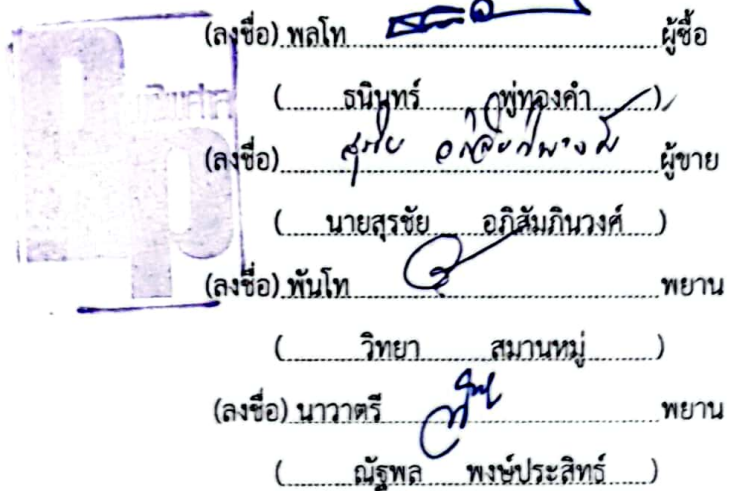 (ลงชื่อ) พลโท ผู้ซื้อ
( ธนินทร์ พู่ทองคำ )
(ลงชื่อ) ผู้ขาย
( นายสุรชัย อภิสัมภินวงศ์ )
(ลงชื่อ) พันโท พยาน
( วิทยา สมานหมู่ )
(ลงชื่อ) นาวาตรี พยาน
( ณัฐพล พงษ์ประสิทธ์ )